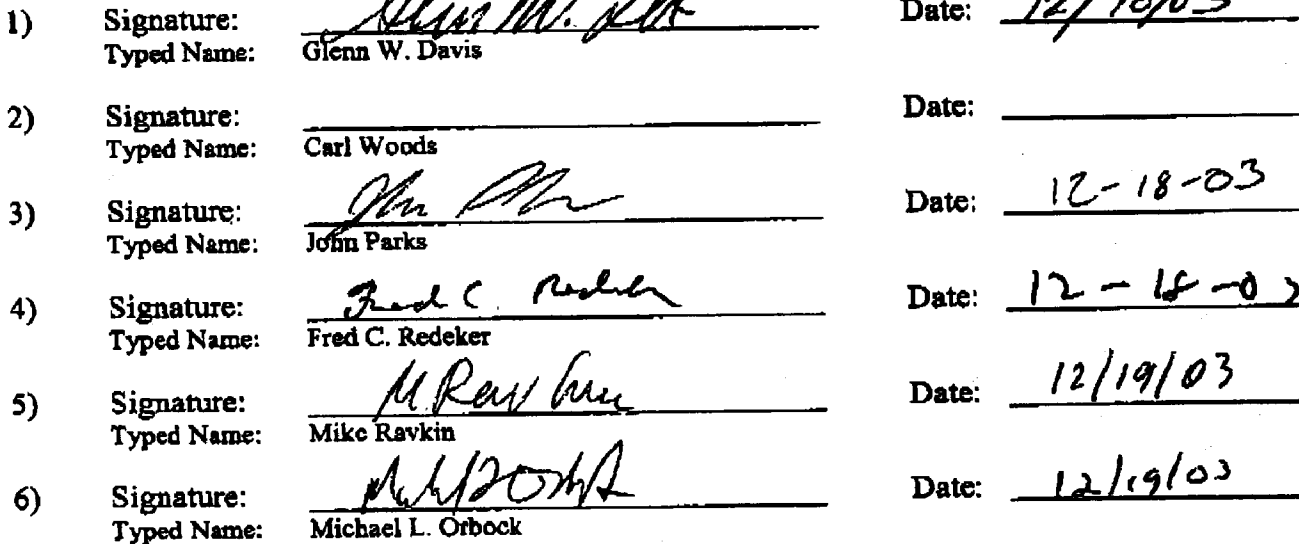 1) Signature: Glenn W. Davis Date: 12/18/03
Typed Name: Glenn W. Davis
2) Signature: Date:
Typed Name: Carl Woods
3) Signature: John Parks Date: 12-18-03
Typed Name: John Parks
4) Signature: Fred C. Redeker Date: 12-18-03
Typed Name: Fred C. Redeker
5) Signature: M Ravkin Date: 12/19/03
Typed Name: Mike Ravkin
6) Signature: Date: 12/19/03
Typed Name: Michael L. Orbock